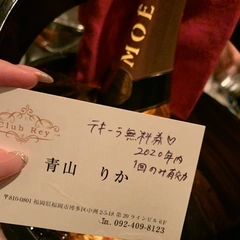 MOE
Club Rey
テキーラ無料券♡
2020年内
1回のみ有効
青山 りか
〒810-0801 福岡県福岡市博多区中洲2-5-18 第20ラインビル6F
☎092-409-8123